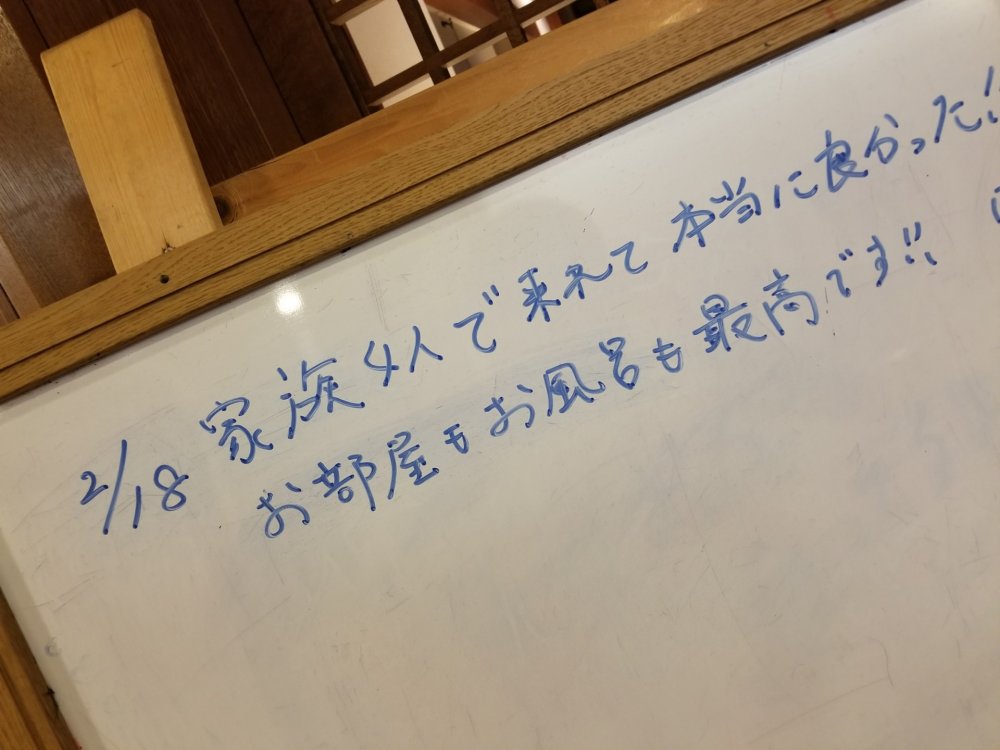 2/18 家族4人で来れて本当に良かった!!
お部屋もお風呂も最高です!!